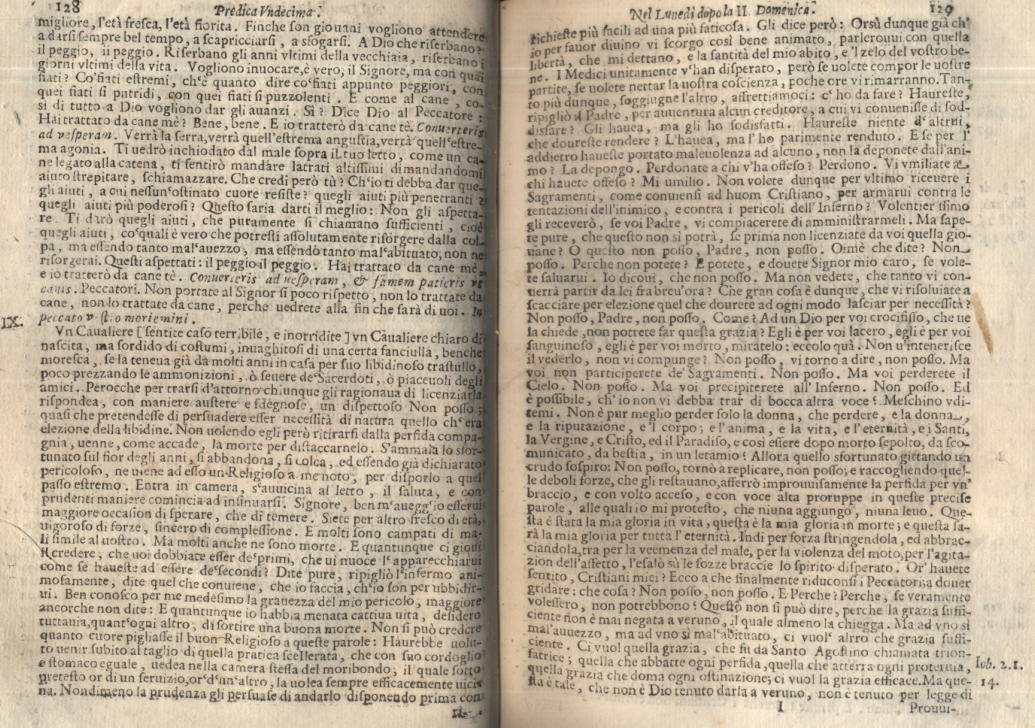 128 Predica Vndecima.
migliore, l'età fresca, l'età fiorita. Finche son giouani vogliono attendere
a darsi sempre bel tempo, a scapricciarsi, a sfogarsi. A Dio che riserbano?
il peggio, il peggio. Riserbano gli anni vltimi della vecchiaia, riserbano i
giorni vltimi della vita. Vogliono inuocare, è vero, il Signore, ma con quai
fiati? Co'fiati estremi, ch'è quanto dire co'fiati appunto peggiori, con
quei fiati sì putridi, con quei fiati sì puzzolenti. E come al cane, co-
sì di tutto a Dio vogliono dar gli auanzi. Sì? Dice Dio al Peccatore:
Hai trattato da cane mè? Bene, bene. E io tratterò da cane tè. Conuerteris
ad vesperam. Verrà la serra, verrà quell'estrema angustia, verrà quell'estre-
ma agonia. Ti uedrò inchiodato dal male sopra il tuo letto, come un ca-
ne legato alla catena, ti sentirò mandare latrati altissimi dimandandomi
aiuto strepitare, schiamazzare. Che credi però tù? Ch'io ti debba dar que-
gli aiuti, a cui nessun'ostinato cuore resiste? quegli aiuti più penetranti?
quegli aiuti più poderosi? Questo saria darti il meglio: Non gli aspetta-
re. Ti darò quegli aiuti, che puramente si chiamano sufficienti, cioè
quegli aiuti, co'quali è vero che potresti assolutamente risorgere dalla col-
pa, ma essendo tanto mal'auuezzo, ma essendo tanto mal'abituato, non ne
risorgerai. Questi aspettati: il peggio il peggio. Hai trattato da cane mè
e io tratterò da cane tè. Conuerteris ad uesperam, & famem patieris vt
canis. Peccatori. Non portate al Signor sì poco rispetto, non lo trattate da
cane, non lo trattate da cane, perche uedrete alla fin che sarà di uoi. In
peccato vestro moriemini.
IX. Vn Caualiere [sentite caso terribile, e inorridite] vn Caualiere chiaro di
nascita, ma sordido di costumi, inuaghitosi di una certa fanciulla, benche
moresca, se la teneua già da molti anni in casa per suo libidinoso trastullo,
poco prezzando le ammonizioni, ò seuere de'Sacerdoti, ò piaceuoli degli
amici. Perocche per trarsi d'attorno chiunque gli ragionaua di licenziarla
rispondea, con maniere austere e sdegnose, un dispettoso Non posso;
quasi che pretendesse di persuadere esser necessità di natura quello ch'era
elezione della libidine. Non uolendo egli però ritirarsi dalla perfida compa-
gnia, uenne, come accade, la morte per distaccarnelo. S'ammala lo sfor-
tunato sul fior degli anni, si abbandona, si colca, ed essendo già dichiarato
pericoloso, ne uiene ad esso un Religioso a me noto, per disporlo a quel
passo estremo. Entra in camera, s'auuicina al letto, il saluta, e con
prudenti maniere comincia ad insinuarsi. Signore, ben m'auegg'io esserui
maggiore occasion di sperare, che di temere. Siete per altro fresco di età,
uigoroso di forze, sincero di complessione. E molti sono campati di ma-
li simile al uostro. Ma molti anche ne sono morte. E quantunque ci gioui
il credere, che uoi dobbiate esser de'primi, che ui nuoce l'apparecchiarui
come se haueste ad essere de'secondi? Dite pure, ripigliò l'infermo ani-
mosamente, dite quel che conuiene, che io faccia, ch'io son per ubbidir-
ui. Ben conosco per me medesimo la grauezza del mio pericolo, maggiore
ancorche non dite: E quantunque io habbia menata cattiua uita, desidero
tuttauia, quant'ogni altro, di sortire una buona morte. Non si può credere
quanto cuore pigliasse il buon Religioso a queste parole! Haurebbe uolu-
to uenir subito al taglio di quella pratica scellerata, che con suo cordoglio
e stomaco eguale, uedea nella camera stessa del moribondo, il quale sotto
pretesto or di un seruizio, or d'un'altro, la uolea sempre efficacemente uici-
na. Nondimeno la prudenza gli persuase di andarlo disponendo prima con
Nel Lunedi dopo la II. Domenica. 129
richieste più facili ad una più faticosa. Gli dice però: Orsù dunque già ch'
io per fauor diuino vi scorgo così bene animato, parlerouui con quella
libertà, che mi dettano, e la santità del mio abito, e'l zelo del vostro be-
ne. I Medici unitamente v'han disperato, però se uolete compor le uostre
partite, se uolete nettar la uostra coscienza, poche ore vi rimarranno. Tan-
to più dunque, soggiugne l'altro, affrettiamoci: c'ho da fare? Haureste,
ripigliò il Padre, per auuentura alcun creditore, a cui vi conuenisse di sod-
disfare? Gli hauea, ma gli ho sodisfatti. Haureste niente d'altrui,
che doureste rendere? L'hauea, ma l'ho patimente renduto. E se per l'
addietro haueste portato maleuolenza ad alcuno, non la deponete dall'ani-
mo? La depongo. Perdonate a chi v'ha offeso? Perdono. Vi vmiliate a
chi hauete offeso? Mi umilio. Non volete dunque per vltimo riceuere i
Sagramenti, come conuiensi ad huom Cristiano, per armarui contra le
tentazioni dell'inimico, e contra i pericoli dell'Inferno? Volentierissimo
gli receverò, se voi Padre, vi compiacerete di amministrarmeli. Ma sape-
te pure, che questo non si potrà, se prima non licenziate da voi quella gio-
uane? O questo non posso, Padre, non posso. Oimè che dite? Non
posso. Perche non potete? E potete, e douete Signor mio caro, se vole-
te saluarui. Io dicoui, che non posso. Ma non vedete, che tanto vi con-
uerrà partir da lei fra breu'ora? Che gran cosa è dunque, che vi risoluiate a
scacciare per elezione quel che dourete ad ogni modo lasciar per necessità?
Non posso, Padre, non posso. Come? Ad un Dio per voi crocifisso, che ue
la chiede, non potrete far questa grazia? Egli è per voi lacero, egli è per voi
sanguinoso, egli è per voi morto, miratelo: eccolo quà. Non v'intenerisce
il vederlo, non vi compunge? Non posso, vi torno a dire, non posso. Ma
voi non participerete de' Sagramenti. Non posso. Ma voi perderete il
Cielo. Non posso. Ma voi precipiterete all'Inferno. Non posso. Ed
è possibile, ch'io non vi debba trar di bocca altra voce? Meschino vdi-
temi. Non è pur meglio perder solo la donna, che perdere, e la donna,
e la riputazione, e'l corpo; e l'anima, e la vita, e l'eternità, e i Santi,
la Vergine, e Cristo, ed il Paradiso, e così essere dopo morto sepolto, da sco-
municato, da bestia, in un letamio? Allora quello sfortunato gittando un
crudo sospiro: Non posso, tornò a replicare, non posso; e raccogliendo quel-
le deboli forze, che gli restauano, afferrò improuuisamente la perfida per vn'
braccio, e con volto acceso, e con voce alta proruppe in queste precise
parole, alle quali io mi protesto, che niuna aggiungo, niuna leuo. Que-
sta è stata la mia gloria in vita, questa è la mia gloria in morte; e questa sa-
rà la mia gloria per tutta l'eternità. Indi per forza stringendola, ed abbrac-
ciandola, tra per la veemenza del male, per la violenza del moto, per l'agita-
zion dell'affetto, l'esalò sù le sozze braccie lo spirito disperato. Or'hauete
sentito, Cristiani miei? Ecco a che finalmente riduconsi i Peccatori: a douer
gridare: che cosa? Non posso, non posso. E Perche? Perche, se veramente
volessero, non potrebbono? Questo non si può dire, perche la grazia suffi-
ciente non è mai negata a veruno, il quale almeno la chiegga. Ma ad vno sì
mal'auuezzo, ma ad vno sì mal'abituato, ci vuol' altro che grazia suffi-
ciente. Ci vuol quella grazia, che fù da Santo Agostino chiamata trion-
fatrice; quella che abbatte ogni perfida, quella che atterra ogni proteruia,
quella grazia che doma ogni ostinazione; ci vuol la grazia efficace. Ma que-
sta è tale, che non è Dio tenuto darla a veruno, non è tenuto per legge di
Iob. 2.1.
14.
I Prouui-